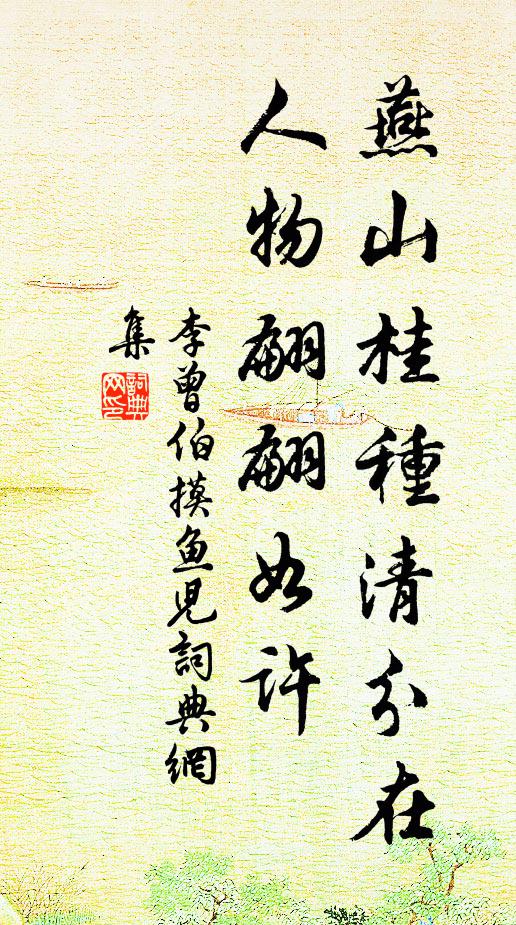 燕山桂種清分在
人物翩翩如許
李曾伯摸鱼児詞典網
集
詞典
网印